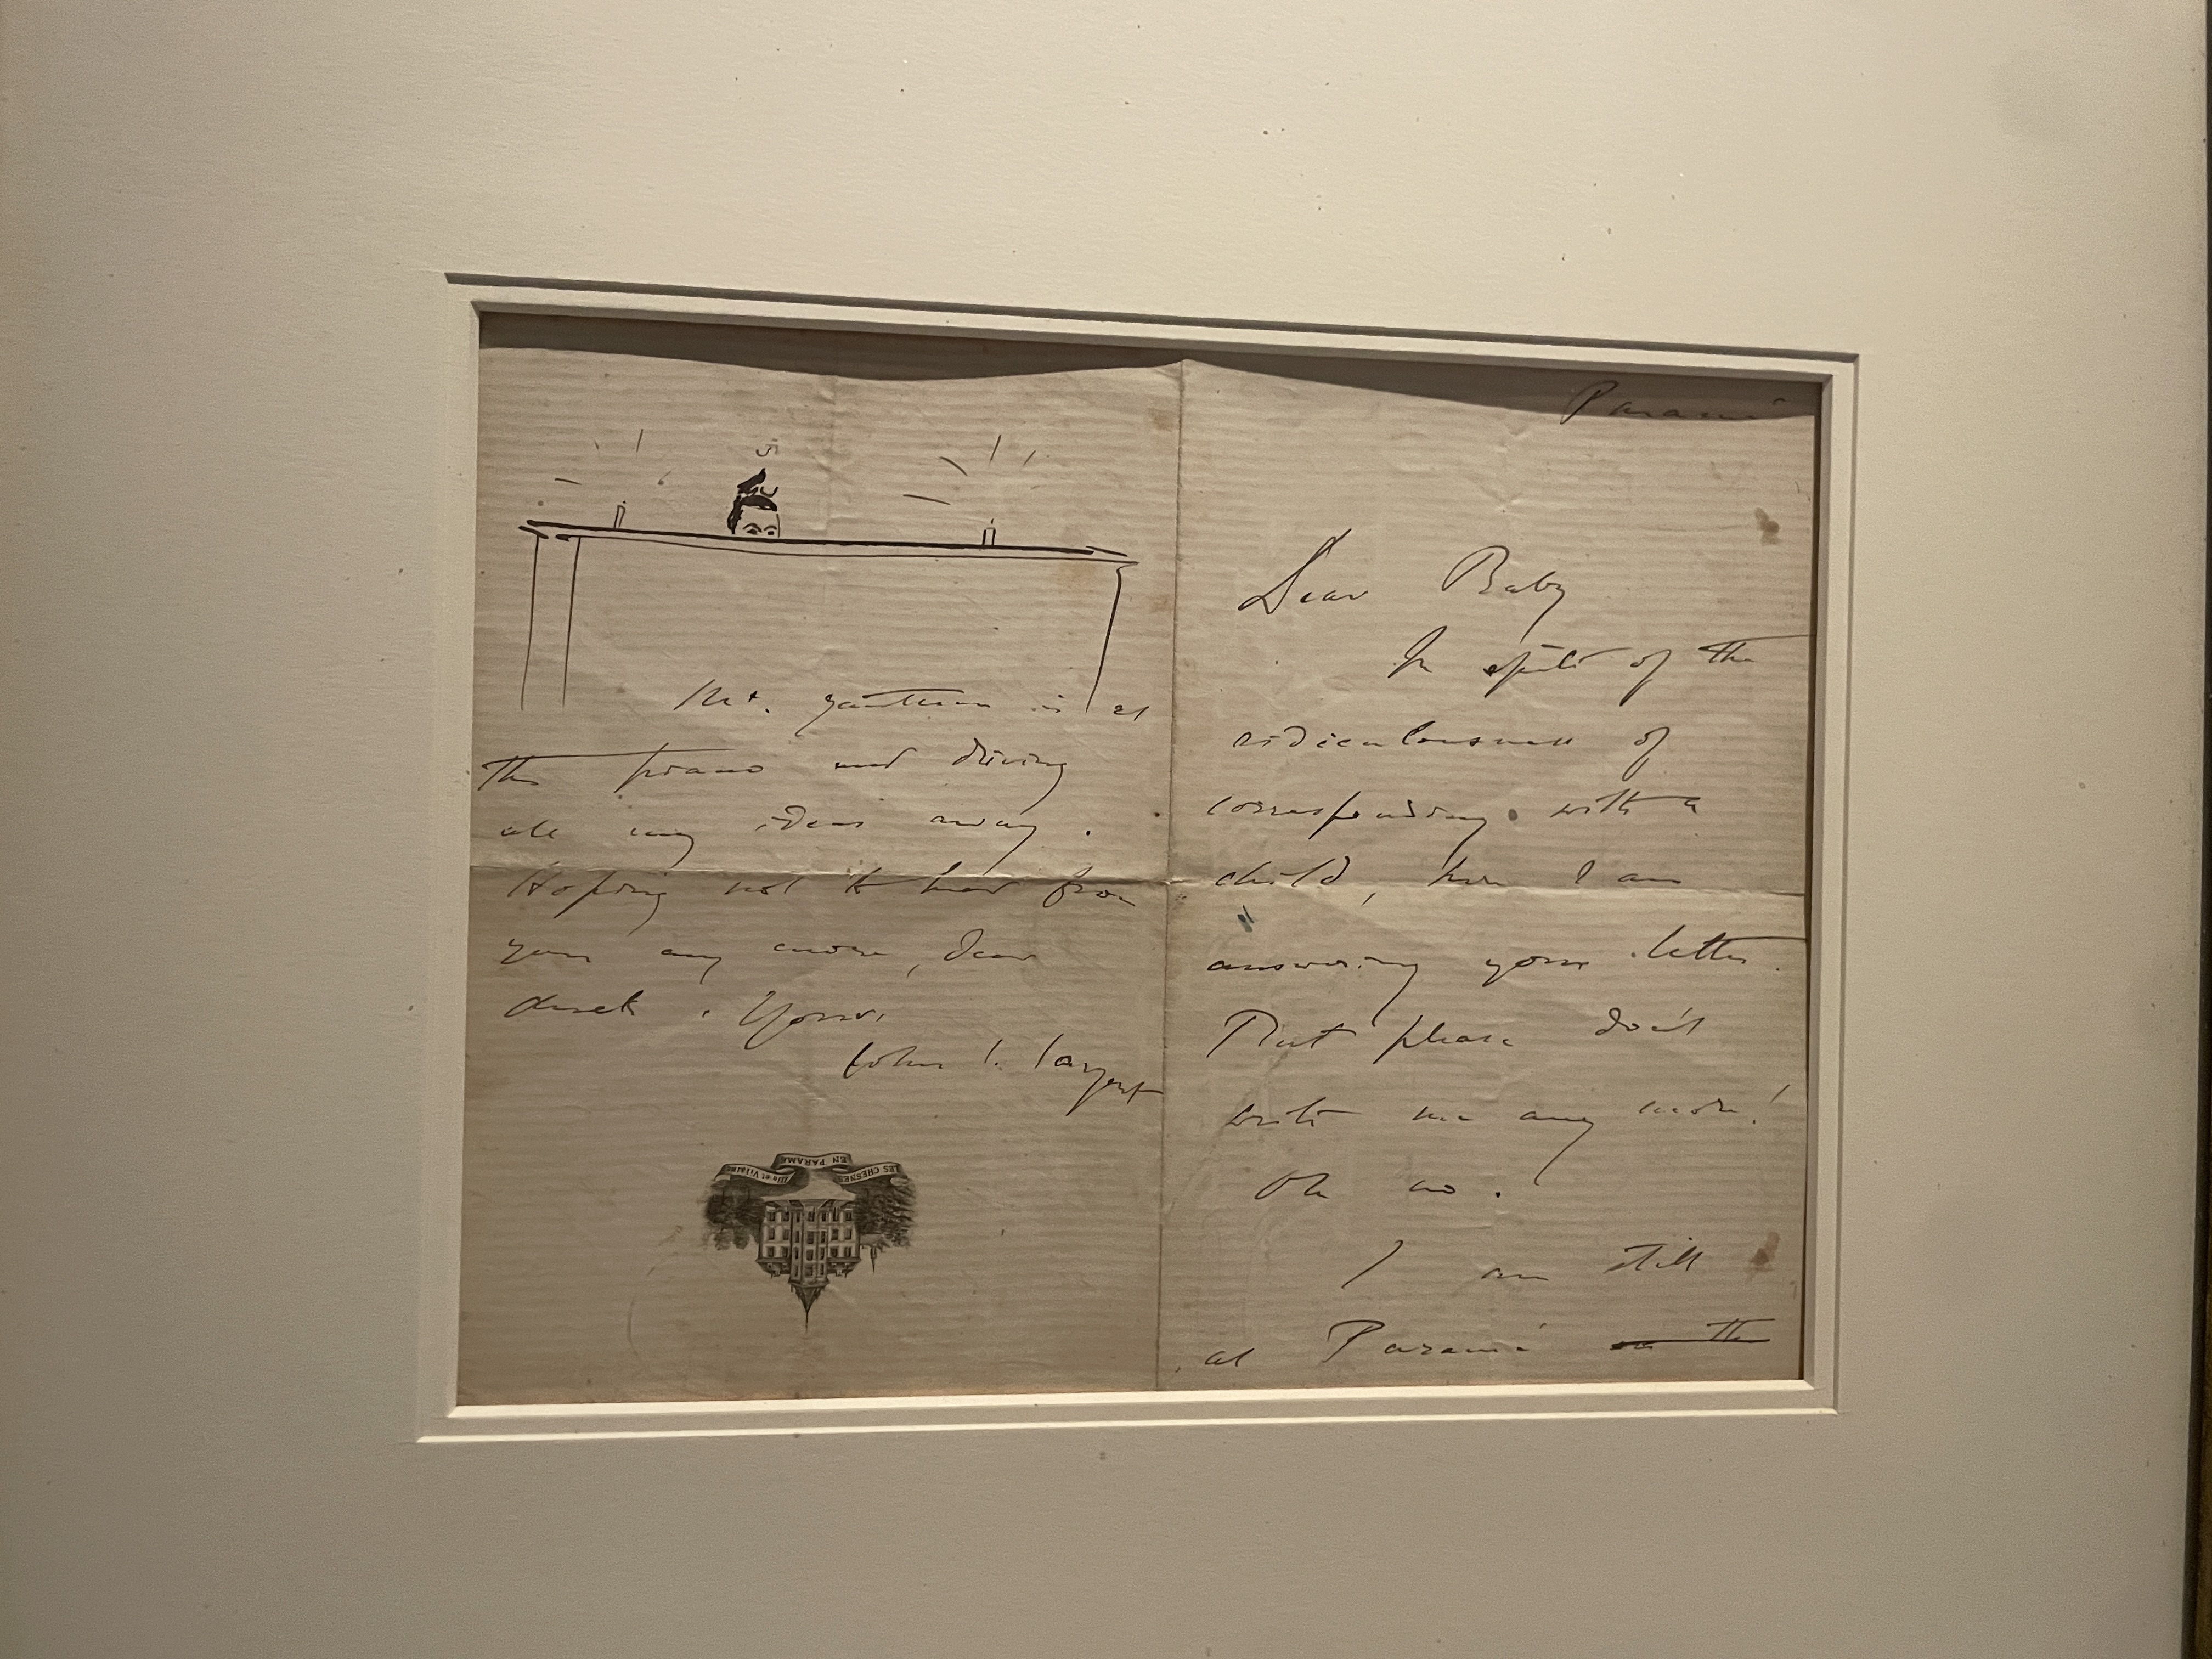 Paramé
Dear Baby
In spite of the
ridiculousness of
corresponding with a
child, here I am
answering your letter.
But please don't
write me any more!
Oh no.
I am still
at Paramé
Mr. Gautreau is at
the piano and driving
all my ideas away.
Hoping not to hear from
you any more, dear
duck. Yours,
John S. Sargent
LES CHESNES
EN PARAMÉ
Ille et Vilaine